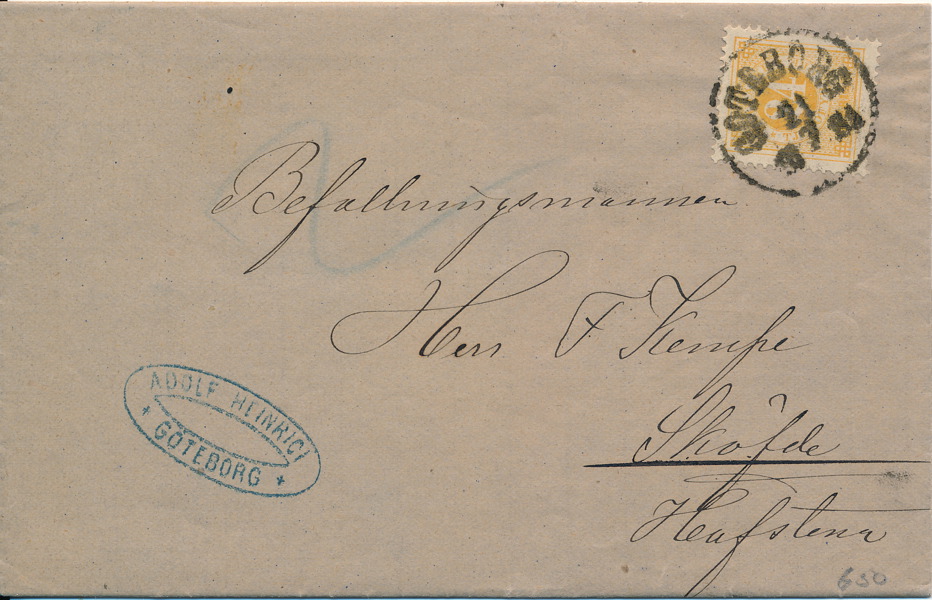 GÖTEBORG
21
7
24
Befallningsmannen
Herr F Kempe
Sköfde
Hafstena
ADOLF HEINRICI
* GÖTEBORG *
650